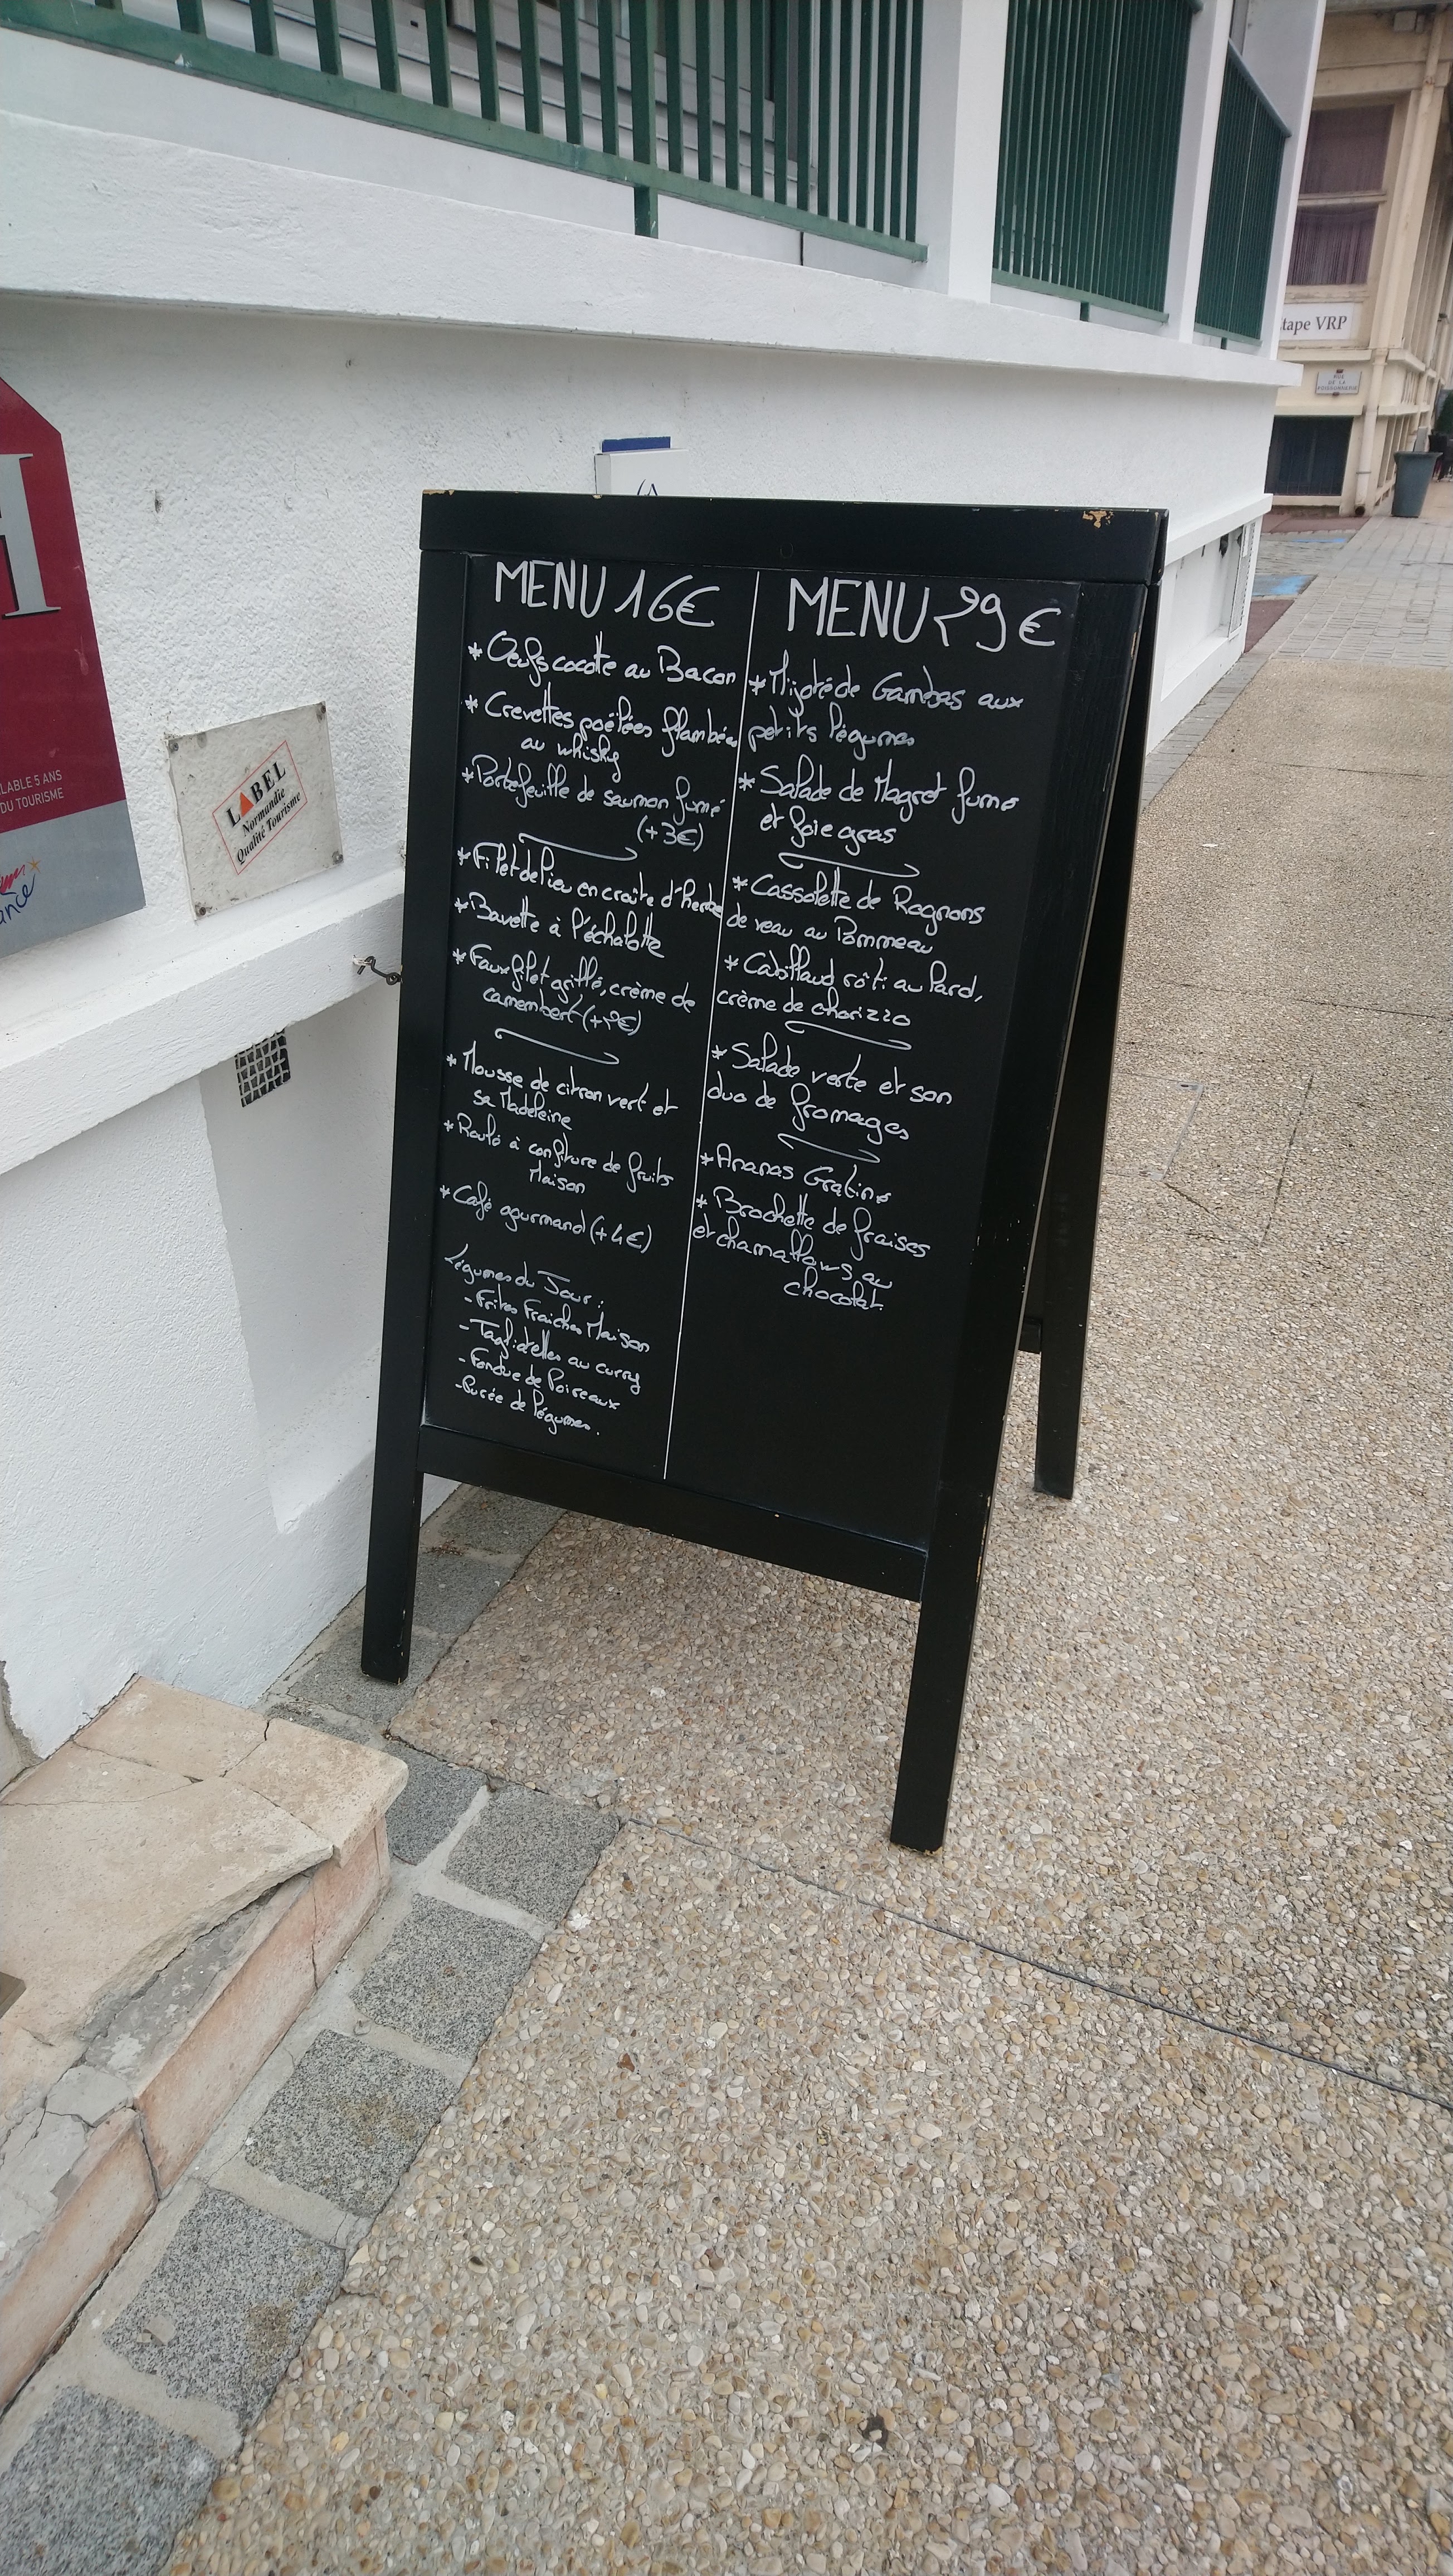 H
LABLE 5 ANS
DU TOURISME
ance
LABEL
Normandie
Qualité Tourisme
tape VRP
RUE
DE LA
POISSONNERIE
MENU 16€
* Oeufs cocotte au Bacon
* Crevettes poëlées flambées
au whisky
* Portefeuille de saumon fumé
(+3€)
* Filet de lieu en croûte d'herbe
* Bavette à l'échalotte
* Faux filet grillé, crème de
camembert (+2€)
* Mousse de citron vert et
sa Madeleine
* Roulé à confiture de fruits
Maison
* Café gourmand (+4€)
Légumes du Jour :
- Frites Fraiches Maison
- Tagliatelles au curry
- Fondue de Poireaux
- Purée de légumes.
MENU 29€
* Mijoté de Gambas aux
petits légumes
* Salade de Magret fumé
et foie gras
* Cassolette de Rognons
de veau au Pommeau
* Cabillaud rôti au lard,
crème de chorizzo
* Salade verte et son
duo de fromages
* Ananas Gratiné
* Brochette de fraises
et chamallows au
chocolat.